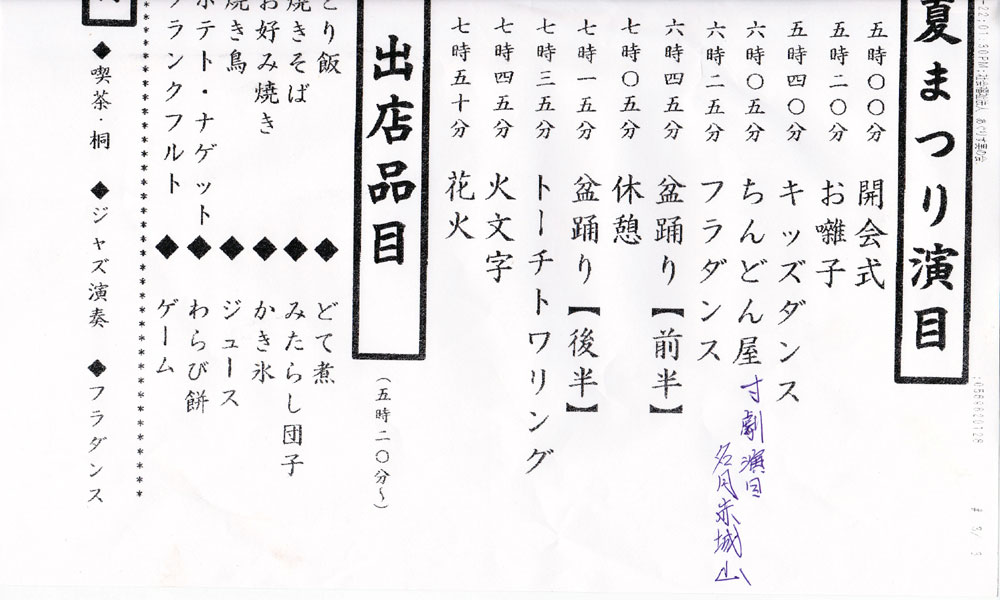 夏まつり演目
五時〇〇分 開会式
五時二〇分 お囃子
五時四〇分 キッズダンス
六時〇五分 ちんどん屋 寸劇演目
名月赤城山
六時二五分 フラダンス
六時四五分 盆踊り【前半】
七時〇五分 休憩
七時一五分 盆踊り【後半】
七時三五分 トーチトワリング
七時四五分 火文字
七時五十分 花火
出店品目
(五時二〇分~)
とり飯 ◆ どて煮
焼きそば ◆ みたらし団子
お好み焼き ◆ かき氷
焼き鳥 ◆ ジュース
ポテト・ナゲット ◆ わらび餅
フランクフルト ◆ ゲーム
◆喫茶・桐 ◆ジャズ演奏 ◆フラダンス